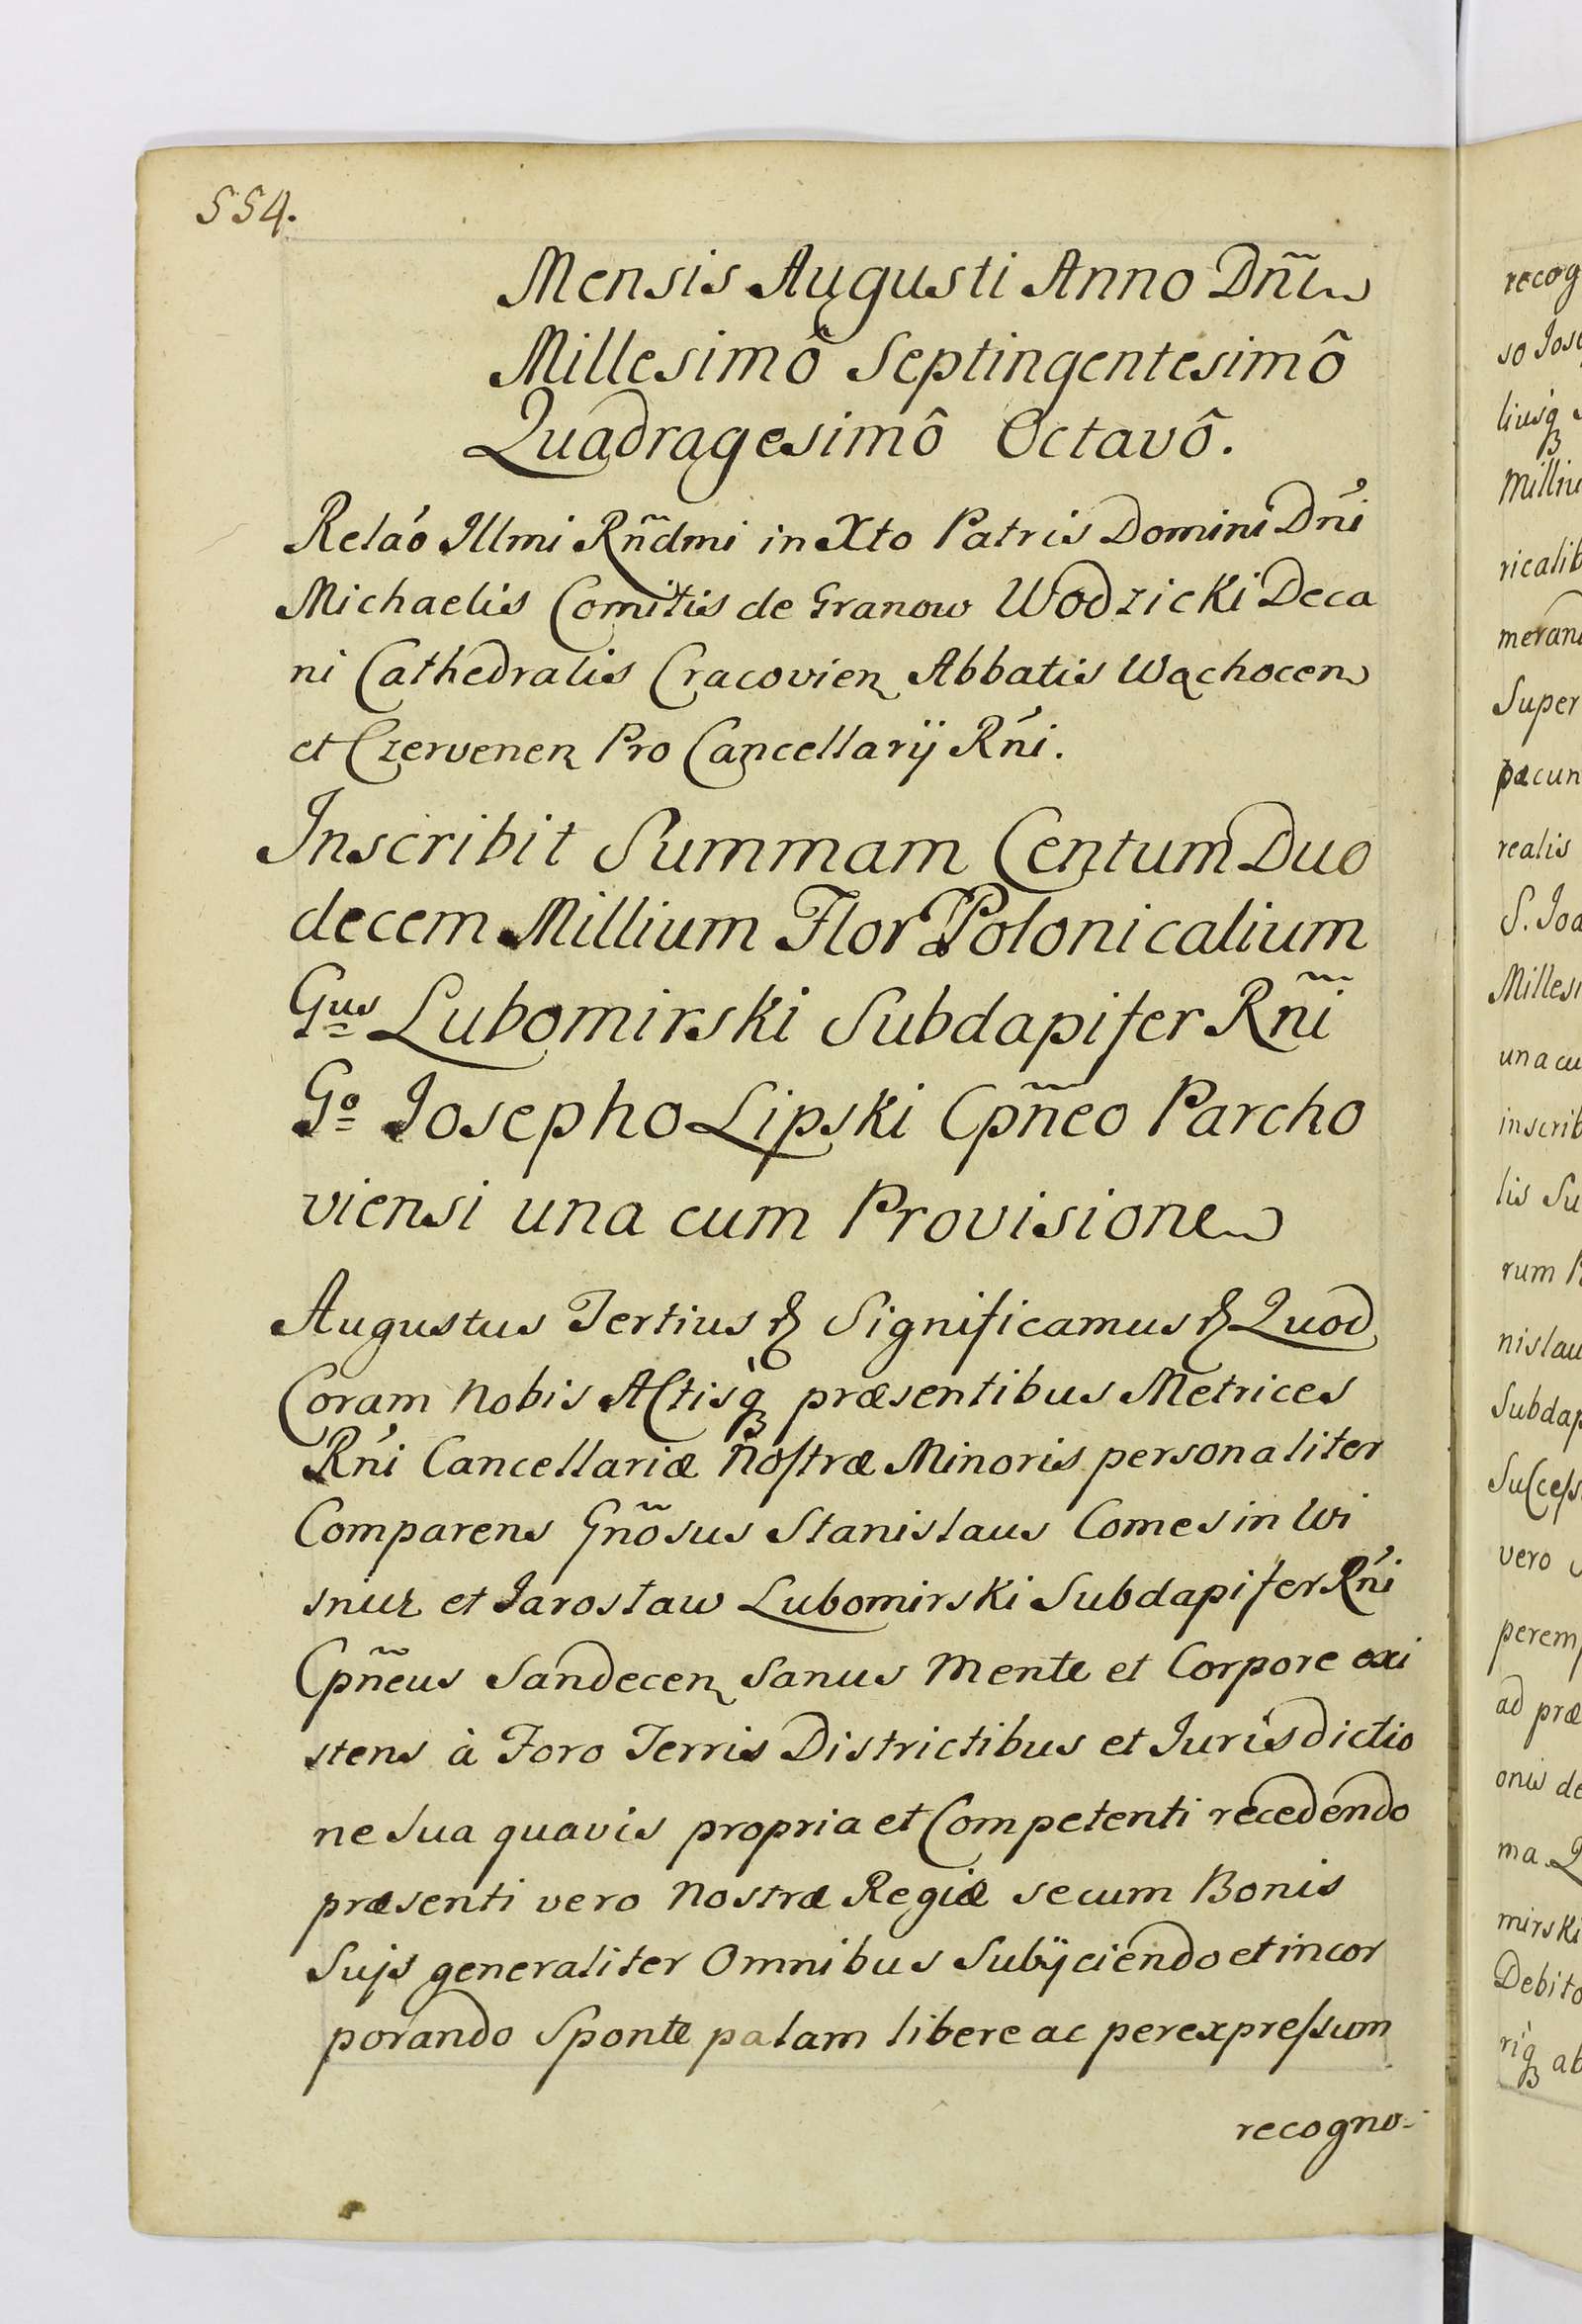 554.
Mensis Augusti Anno Dñi
Millesimô Septingentesimô
Quadragesimô Octavô.
Reláo Illmi Rñdmi in Xto Patris Domini Dńi
Michaelis Comitis de Granow Wodzicki Deca
ni Cathedralis Cracovien Abbatis Wąchocen
et Czervenen Pro Cancellarij Rńi.
Inscribit Summam Centum Duo
decem Millium Flor Polonicalium
Gus Lubomirski Subdapifer Rñi
Go Josepho Lipski Cpñeo Parcho
viensi una cum Provisione
Augustus Tertius & Significamus & Quod
Coram Nobis Actisq præsentibus Metrices
Rńi Cancellariæ Nostræ Minoris personaliter
Comparens Gñosus Stanislaus Comes in Wi
snicz et Jarosław Lubomirski Subdapifer Rńi
Cpñeus Sandecen Sanus Mente et Corpore exi
stens à Foro Terris Districtibus et Jurisdictio
ne Sua quavis propria et Competenti recedendo
præsenti vero Nostræ Regiæ secum Bonis
Sujs generaliter Omnibus Subijciendo et incor
porando Sponte palam libere ac perexpressum
recogno-
recog
so Jos
liusq
Milliu
ricalib
meran
Super
pecun
realis
S. Joa
Milles
una cu
inscrib
lis Su
rum
nislau
Subdap
Success
vero
perem
ad præ
onis de
ma
mirski
Debito
riq ab